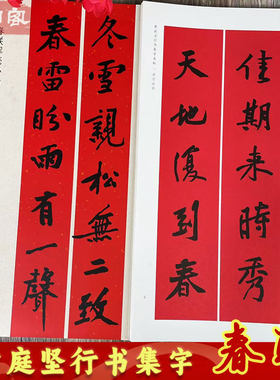 佳期来時秀
天地復到春
冬雪親松無二致
春雷盼雨有一聲
庭坚行书集字
春